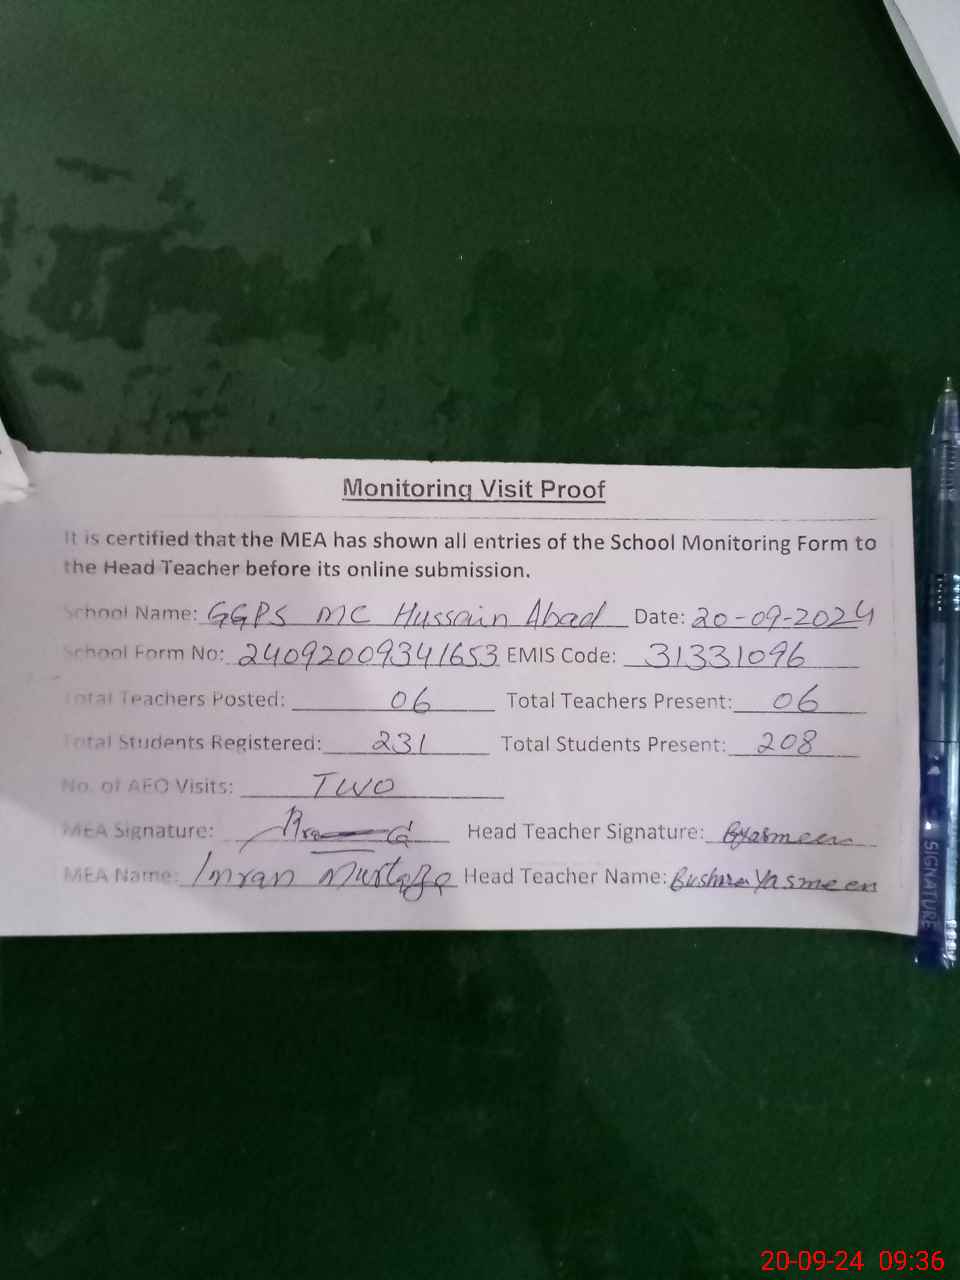 Monitoring Visit Proof
It is certified that the MEA has shown all entries of the School Monitoring Form to
the Head Teacher before its online submission.
School Name: GGPS MC Hussain Abad Date: 20-09-2024
School Form No: 24092009341653 EMIS Code: 31331096
Total Teachers Posted: 06 Total Teachers Present: 06
Total Students Registered: 231 Total Students Present: 208
No. of AEO Visits: TWO
MEA Signature: Head Teacher Signature: BYasmeen
MEA Name: Imran Murtaza Head Teacher Name: Bushra Yasmeen
SIGNATURE
20-09-24 09:36